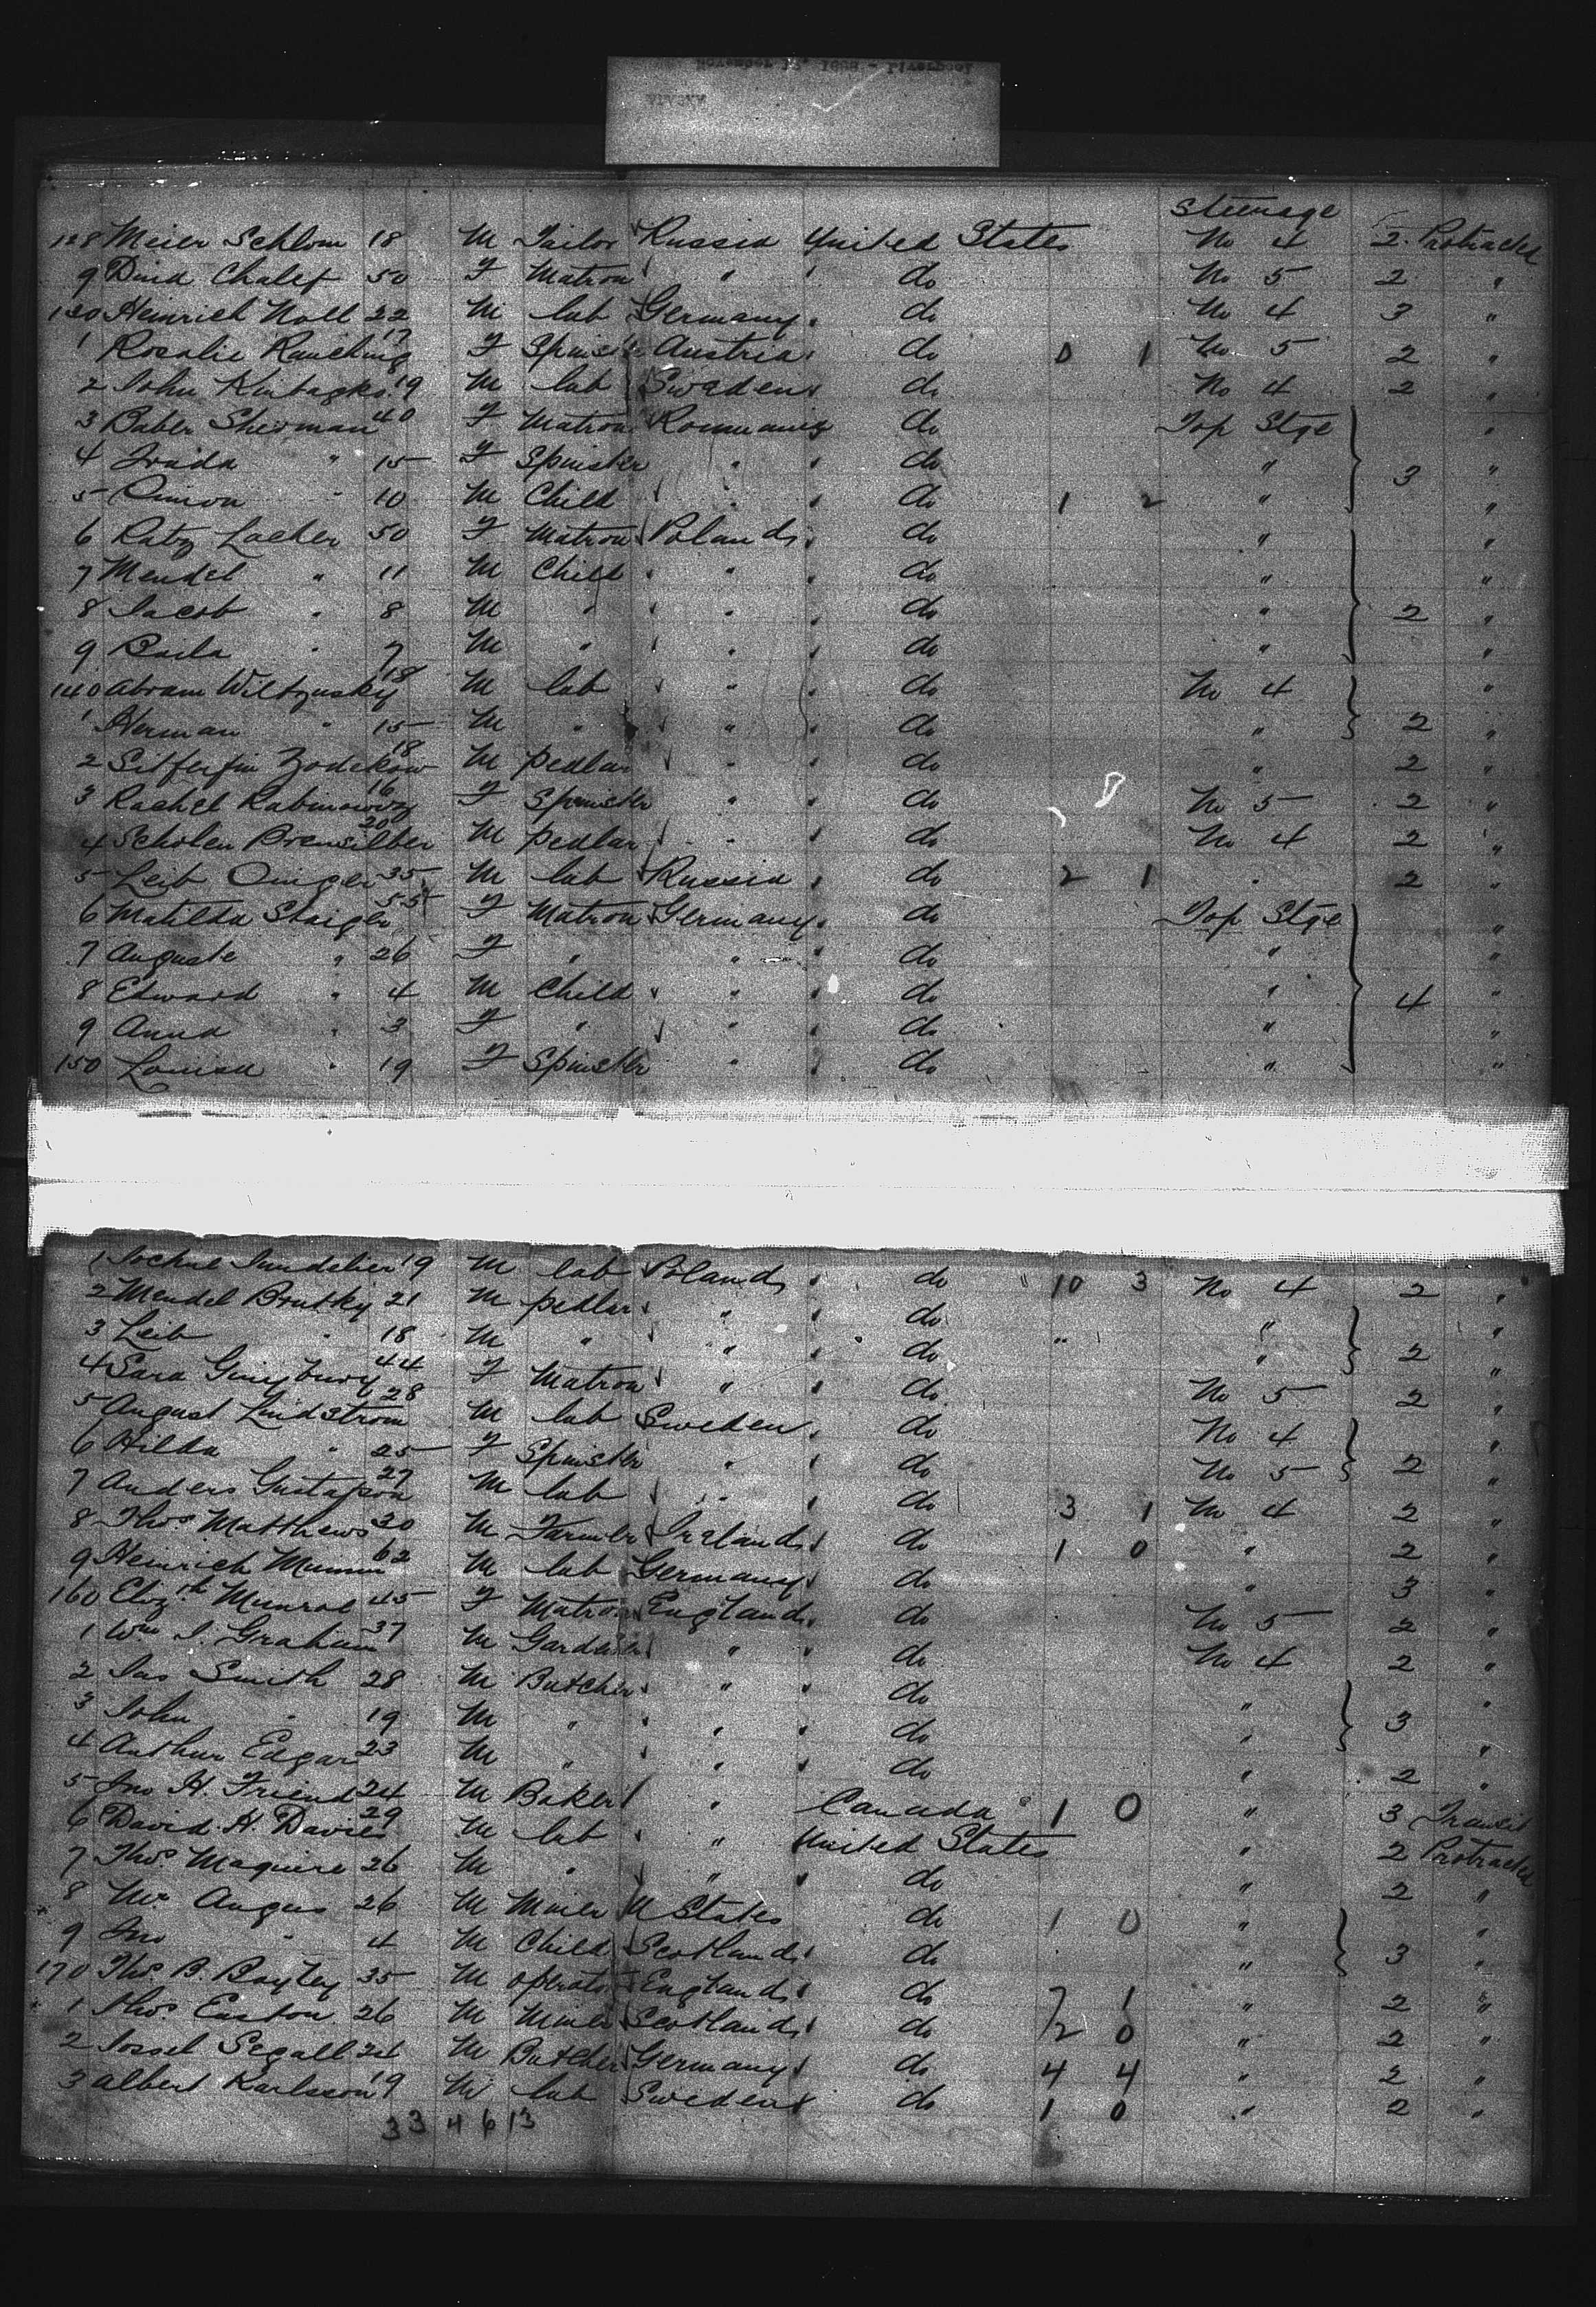 November 12, 1888 - Liverpool
ALASKA
Steerage
128 Meier Schlom 18 M Tailor Russia United States No 4 2 Protracted
9 Chalef 50 F Matron " do No 5 2 "
130 Heinrich Noll 22 M lab Germany do No 4 3 "
1 Rosalie 17 F Spinster Austria do 0 1 No 5 2 "
2 John 19 M lab Sweden do No 4 2 "
3 Baber Sherman 40 F Matron Roumania do Top Stge "
4 " 15 F Spinster " do " 3 "
5 Simon " 10 M Child " do 1 2 " "
6 Ratz Lacher 50 F Matron Poland do " "
7 Mendel " 11 M Child " do " "
8 Jacob " 8 M " " do " 2 "
9 Baila " 7 M " " do " "
140 Abram 18 M lab " do No 4 "
1 Herman " 15 M " " do " 2 "
2 18 M pedlar " do " 2 "
3 Rachel Rabinowizg 16 F Spinster " do No 5 2 "
4 Scholen 20 M pedlar " do No 4 2 "
5 Leib 35 M lab Russia do 2 1 " 2 "
6 Matilda Staiger 55 F Matron Germany do Top Stge "
7 Auguste " 26 F " " do " "
8 Edward " 4 M Child " do " 4 "
9 Anna " 3 F " " do " "
150 Louisa " 19 F Spinster " do " "
1 19 M lab Poland do 10 3 No 4 2 "
2 Mendel Brutky 21 M pedlar " do " "
3 Leib " 18 M " " do " 2 "
4 Sara 44 F Matron " do No 5 2 "
5 August Lindstrom 28 M lab Sweden do No 4 "
6 Hilda " 25 F Spinster " do No 5 2 "
7 Anders Gustafson 27 M lab " do 3 1 No 4 2 "
8 Thos Matthews 20 M Farmer Ireland do 1 0 " 2 "
9 Heinrich 62 M lab Germany do " 3 "
160 Elizth Munroe 45 F Matron England do No 5 2 "
1 Wm J. Graham 37 M Gardener " do No 4 2 "
2 Jas Smith 28 M Butcher " do " "
3 John " 19 M " " do " 3 "
4 Arthur Edgar 23 M " " do " 2 "
5 Jno H. Friend 24 M Baker " Canada 1 0 " 3 Transit
6 David H. Davies 29 M lab " United States " 2 Protracted
7 Thos Maguire 26 M " " do " 2 "
8 Angus 26 M Miner U States do 1 0 " "
9 Jno " 4 M Child Scotland do " 3 "
170 Thos B. Bayley 35 M operator England do 7 1 " 2 "
1 Thos Easton 26 M Miner Scotland do 2 0 " 2 "
2 Segall M Butcher Germany do 4 4 " 2 "
3 Albert Karlsson 19 M lab Sweden do 1 0 " 2 "
33 4 6 13